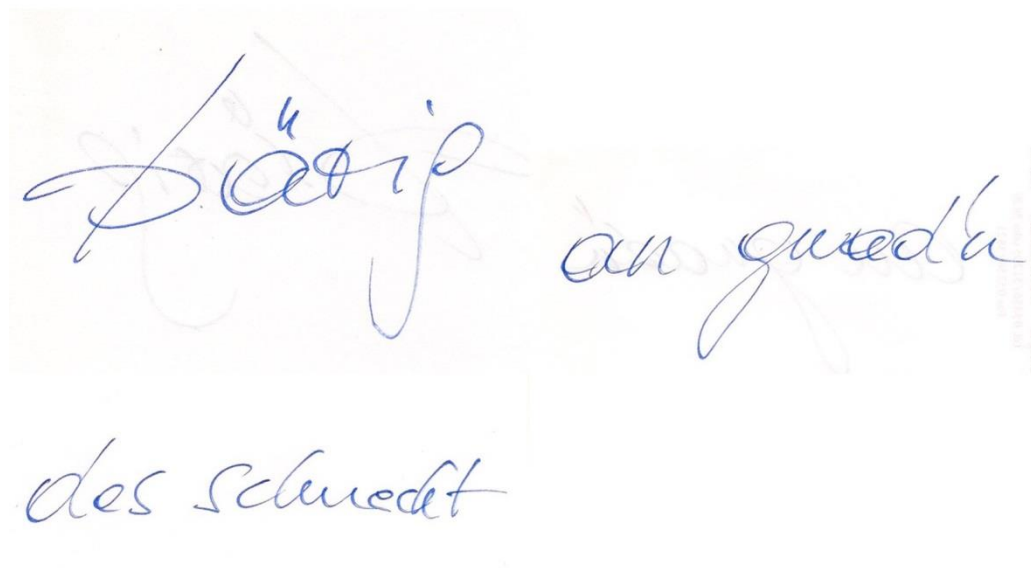 Bärig
an guad'n
des schmeckt